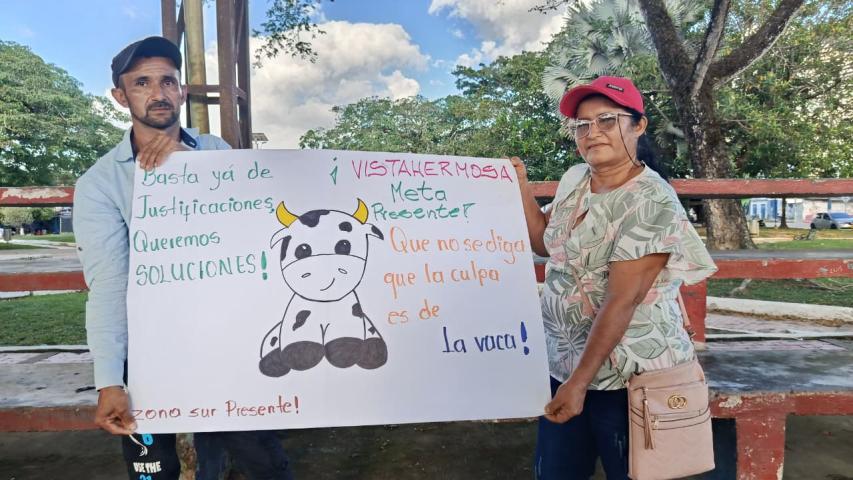 Basta yá de
Justificaciones,
Queremos
SOLUCIONES!
¡ VISTAHERMOSA
Meta
Presente!
Que no se diga
que la culpa
es de
La vaca!
zona sur Presente!
USE THE